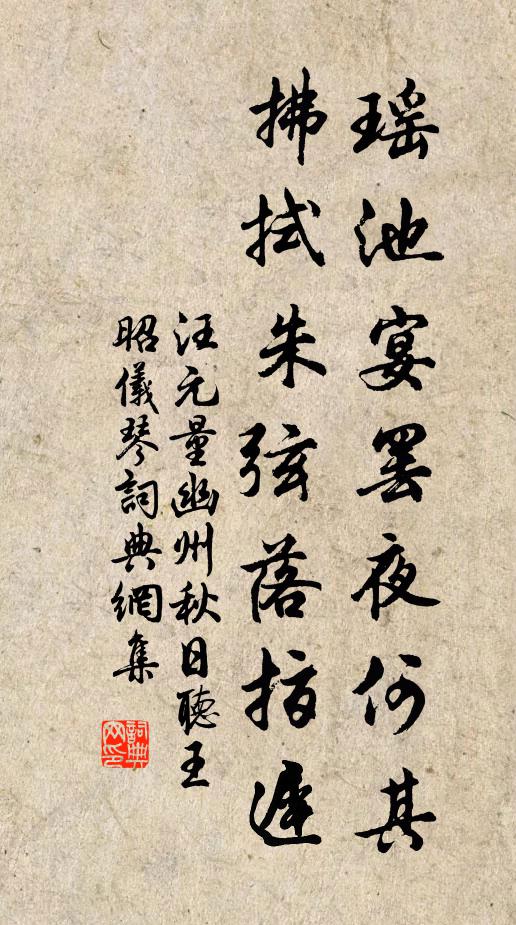 瑶池宴罢夜何其
拂拭朱弦落指遲
汪元量幽州秋日聽王
昭儀琴詞典網集
詞典
网印